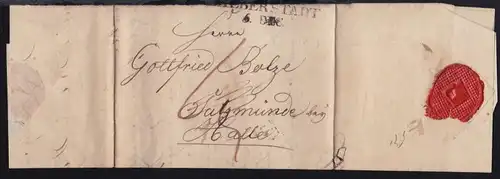 BERSTADT
6. DEC
Herrn
Gottfried Bolze
Salzmünde bey
Halle.